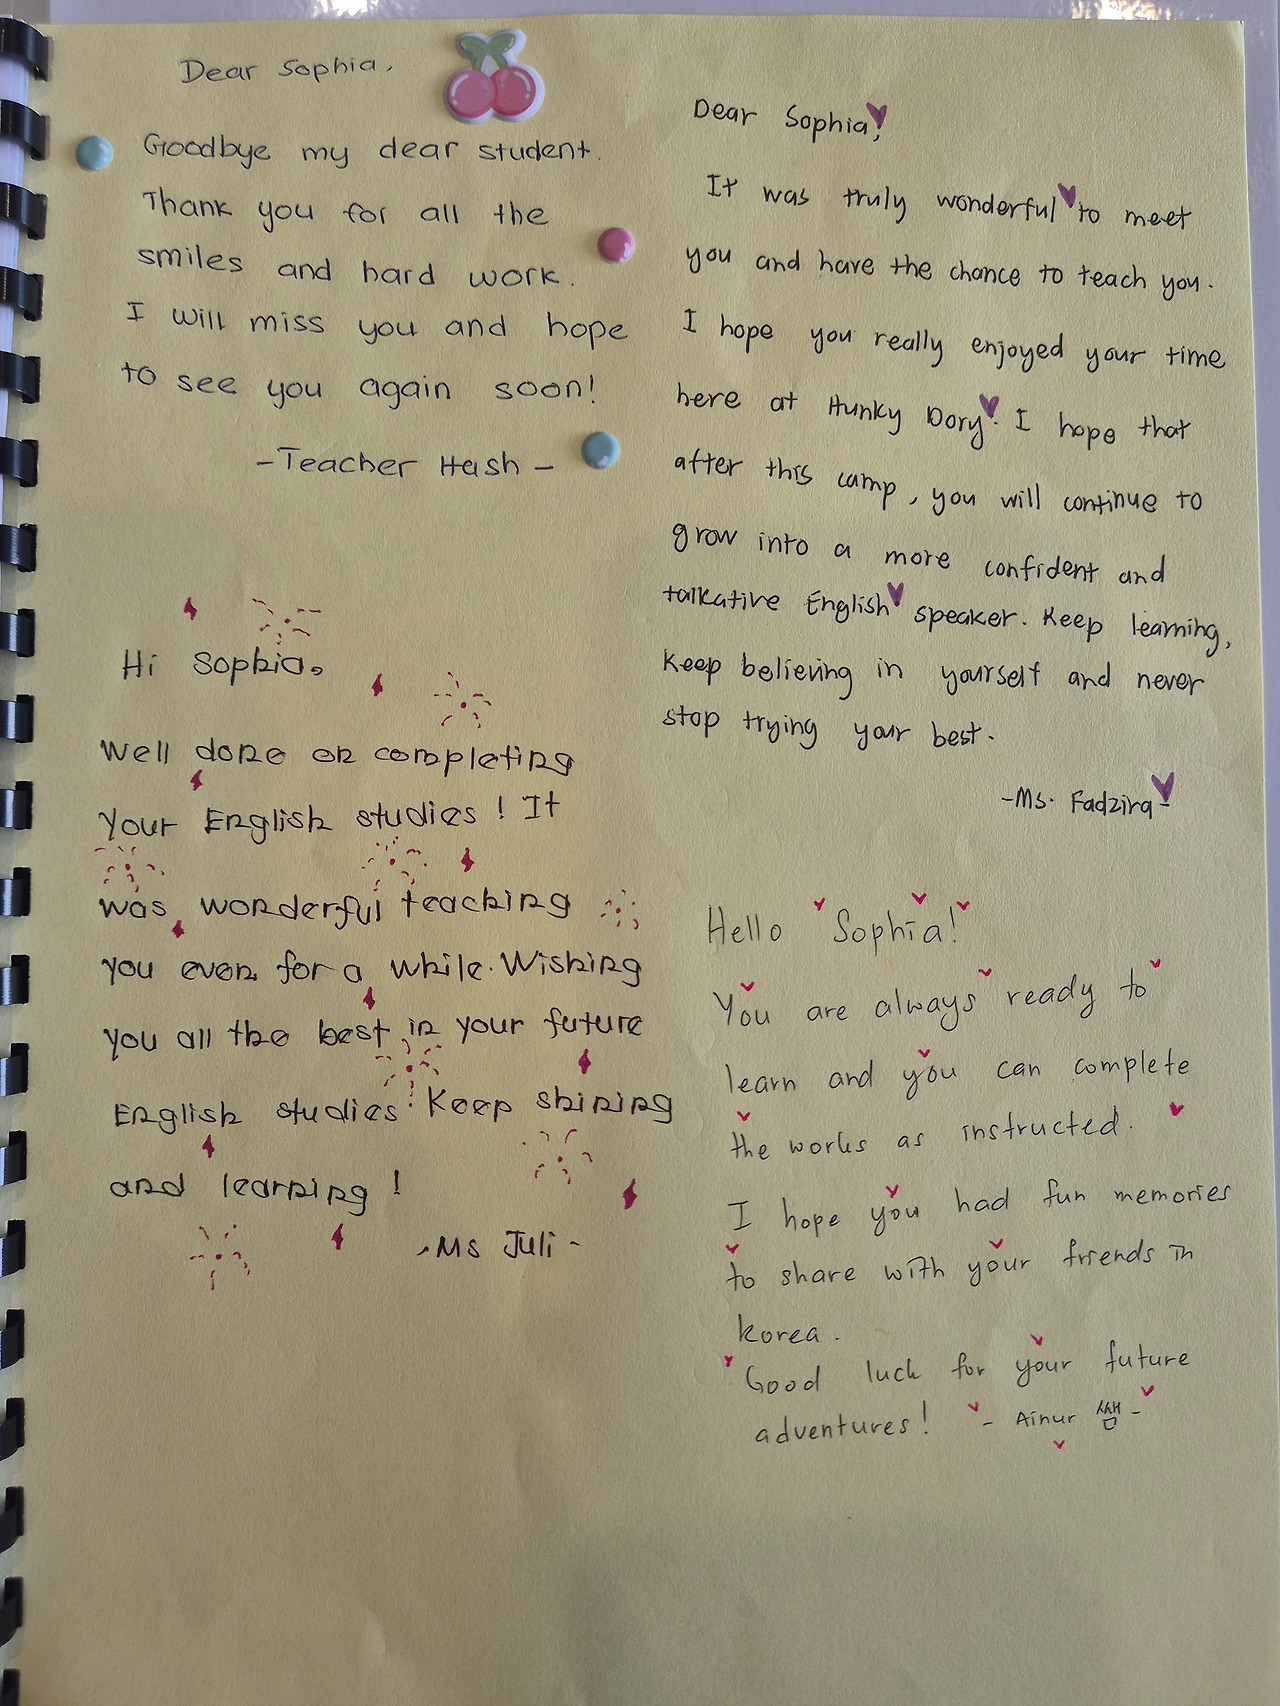 Dear Sophia,
Goodbye my dear student.
Thank you for all the
smiles and hard work.
I will miss you and hope
to see you again soon!
-Teacher Hash-
Hi Sophia,
Well done on completing
your English studies! It
was wonderful teaching
you even for a while. Wishing
you all the best in your future
English studies. Keep shining
and learning!
-Ms Juli-
Dear Sophia,
It was truly wonderful to meet
you and have the chance to teach you.
I hope you really enjoyed your time
here at Hunky Dory. I hope that
after this camp, you will continue to
grow into a more confident and
talkative English speaker. Keep learning,
keep believing in yourself and never
stop trying your best.
-Ms. Fadzira-
Hello Sophia!
You are always ready to
learn and you can complete
the works as instructed.
I hope you had fun memories
to share with your friends in
korea.
Good luck for your future
adventures! - Ainur 쌤 -